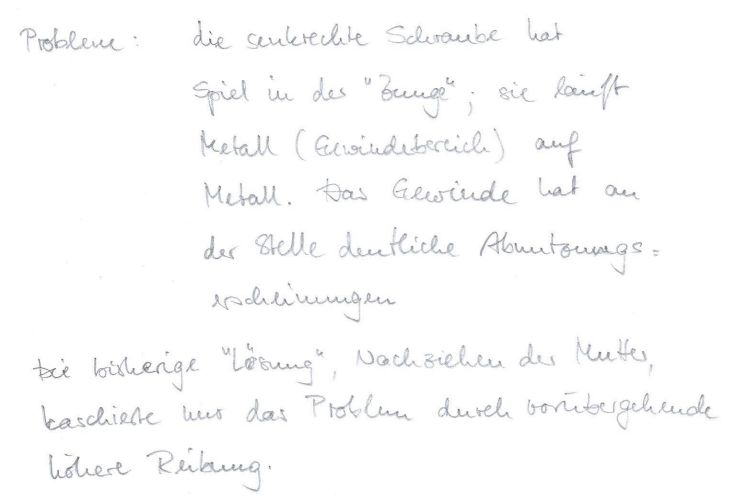 Probleme: die senkrechte Schraube hat
Spiel in der "Zunge"; sie läuft
Metall (Gewindebereich) auf
Metall. Das Gewinde hat an
der Stelle deutliche Abnutzungs=
erscheinungen
Die bisherige "Lösung", Nachziehen der Mutter,
kaschierte nur das Problem durch vorübergehende
höhere Reibung.